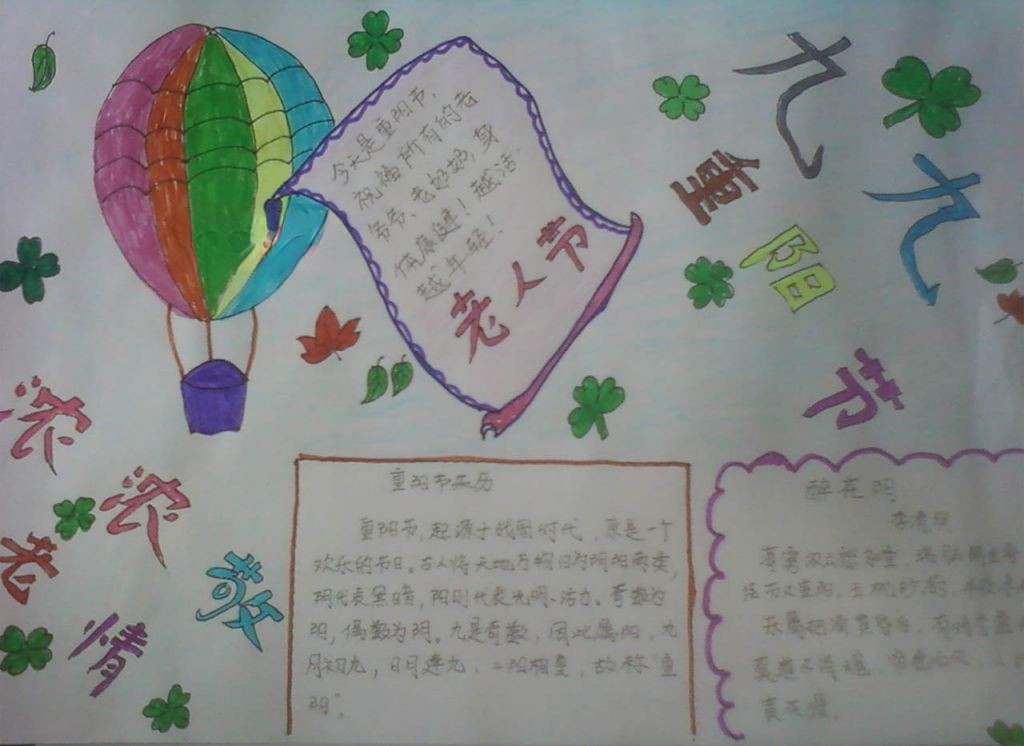 九九重阳节
今天是重阳节，
祝福所有的老
爷爷、老奶奶，身
体康健！越活
越年轻！
老人节
浓浓敬老情
重阳节来历
重阳节，起源于战国时代，原是一个
欢乐的节日。古人将天地万物归为阴阳两类，
阴代表黑暗，阳则代表光明、活力。奇数为
阳，偶数为阴。九是奇数，因此属阳，九
月初九，日月逢九，二阳相重，故称“重
阳”。
醉花阴
李清照
薄雾浓云愁永昼，瑞脑
佳节又重阳，玉枕纱厨，半夜凉
东篱把酒黄昏后，有暗香盈
莫道不消魂，帘卷西风，人
黄花瘦。